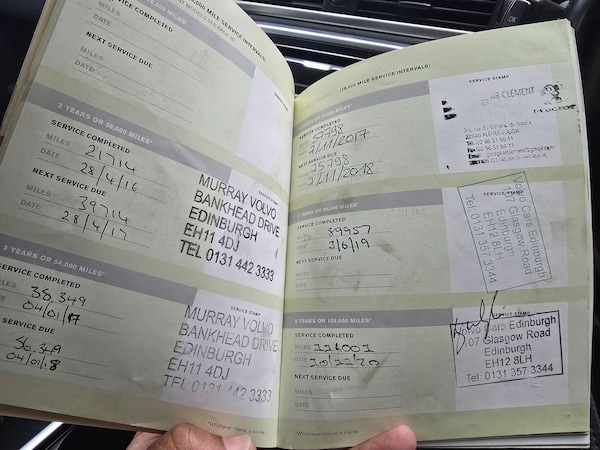 MILES
DATE
SERVICE COMPLETED
NEXT SERVICE DUE
MILES
DATE
2 YEARS OR 36,000 MILES*
SERVICE COMPLETED
MILES 21714
DATE 28/4/16
NEXT SERVICE DUE
MILES 39714
DATE 28/4/17
SERVICE STAMP
MURRAY VOLVO
BANKHEAD DRIVE
EDINBURGH
EH11 4DJ
TEL 0131 442 3333
3 YEARS OR 54,000 MILES*
SERVICE COMPLETED
38,349
04/01/17
SERVICE DUE
56,349
04/01/18
SERVICE STAMP
MURRAY VOLVO
BANKHEAD DRIVE
EDINBURGH
EH11 4DJ
TEL 0131 442 3333
*Whichever interval is sooner
(18,000 MILE SERVICE INTERVALS)
SERVICE COMPLETED
57798
/11/2017
NEXT SERVICE DUE
75798
/11/2018
SERVICE STAMP
CLEMENT
PEUGEOT
SERVICE COMPLETED
89957
DATE 3/6/19
NEXT SERVICE DUE
MILES
DATE
SERVICE STAMP
Volvo Cars Edinburgh
Glasgow Road
Edinburgh
EH12 8LH
Tel: 0131 357 3344
6 YEARS OR 108,000 MILES*
SERVICE COMPLETED
MILES
DATE
NEXT SERVICE DUE
MILES
DATE
SERVICE STAMP
Cars Edinburgh
Glasgow Road
Edinburgh
EH12 8LH
Tel: 0131 357 3344
*Whichever interval is sooner
OK